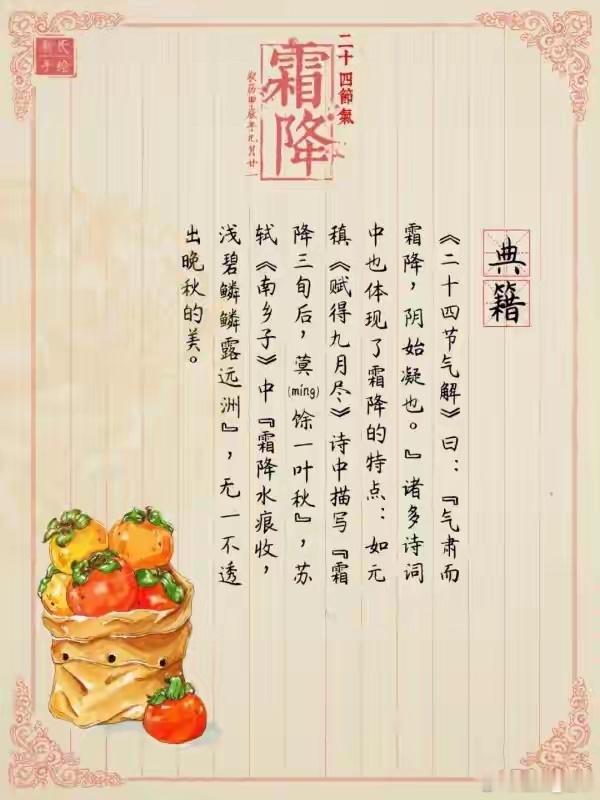 二十四節氣
霜降
农历甲辰年九月廿一
典籍
《二十四节气解》曰：『气肃而
霜降，阴始凝也。』诸多诗词
中也体现了霜降的特点：如元
稹《赋得九月尽》诗中描写『霜
降三旬后，蓂(míng)馀一叶秋』，苏
轼《南乡子》中『霜降水痕收，
浅碧鳞鳞露远洲』，无一不透
出晚秋的美。